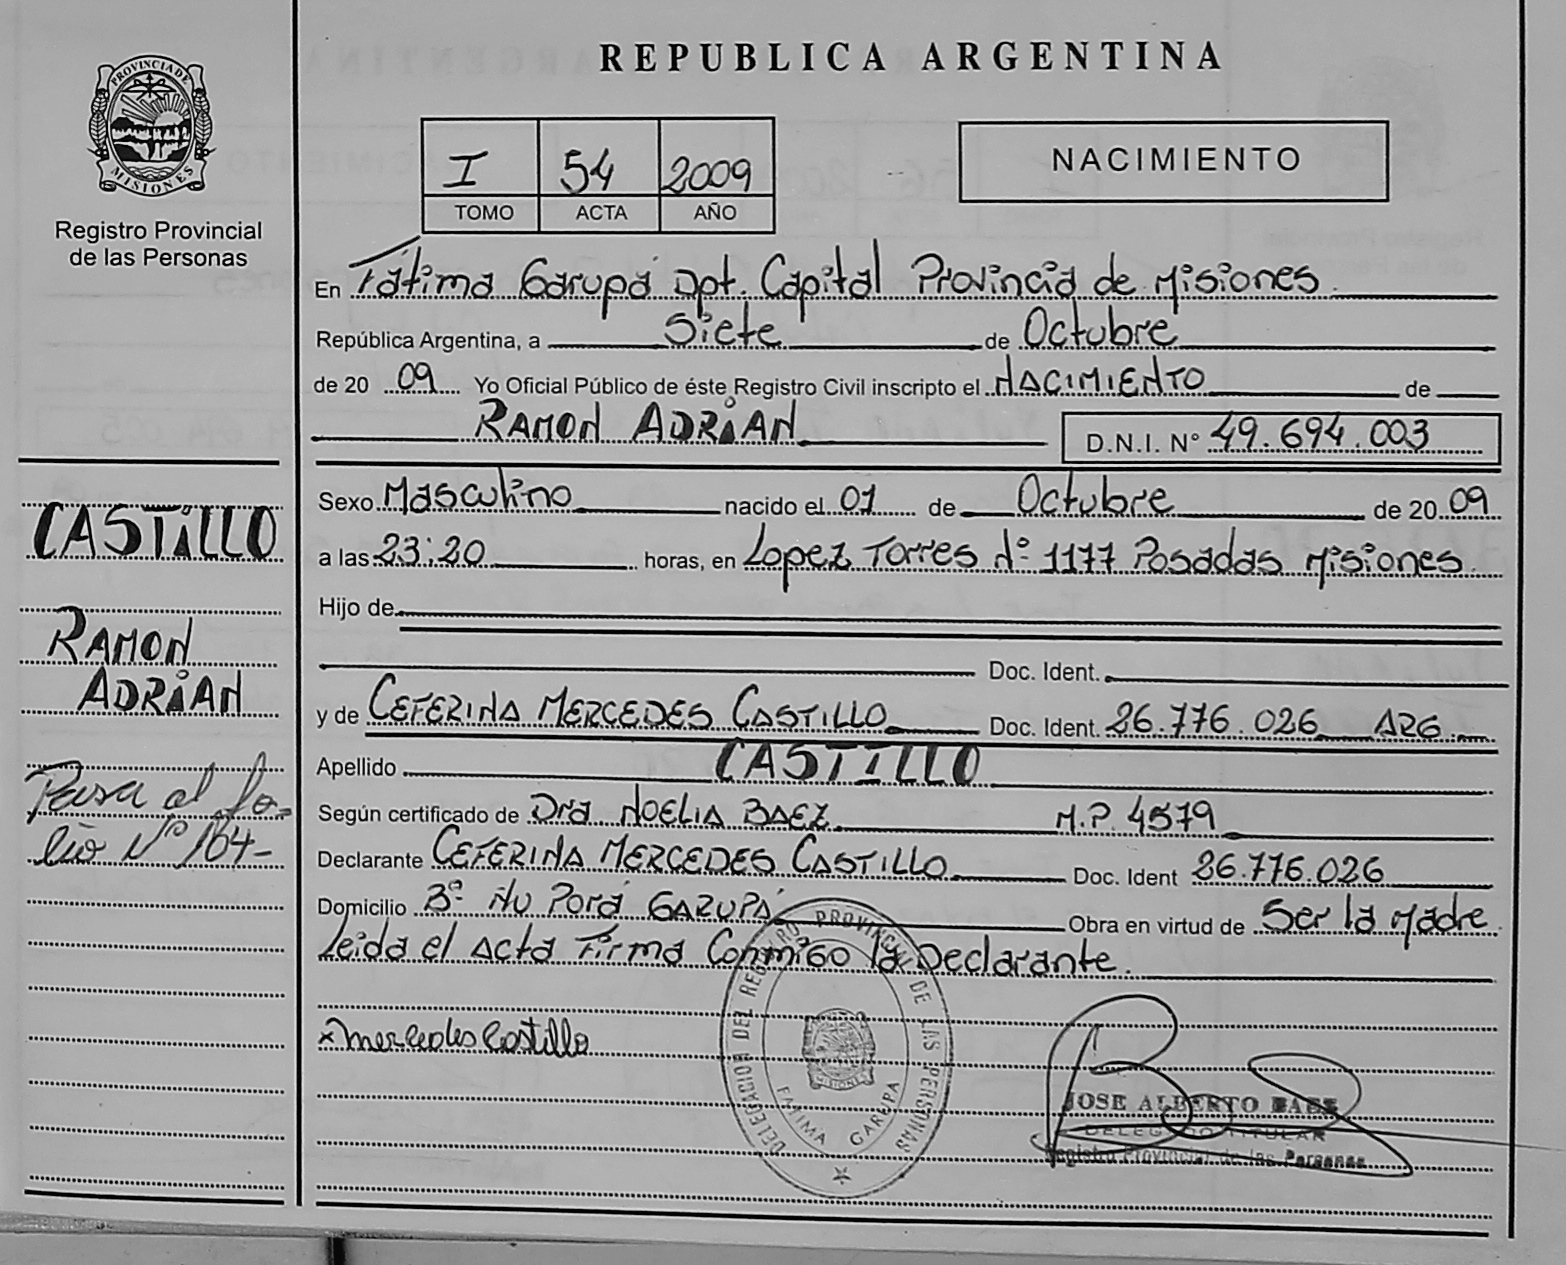 PROVINCIA DE
MISIONES
Registro Provincial
de las Personas
REPUBLICA ARGENTINA
I 54 2009
TOMO ACTA AÑO
NACIMIENTO
En Fátima Garupá Dpt. Capital Provincia de Misiones
República Argentina, a Siete de Octubre
de 20 09 Yo Oficial Público de éste Registro Civil inscripto el NACIMIENTO de
RAMON ADRIAN D.N.I. N° 49.694.003
Sexo Masculino nacido el 01 de Octubre de 20 09
a las 23:20 horas, en Lopez Torres Nº 1177 Posadas Misiones
Hijo de
Doc. Ident.
y de CEFERINA MERCEDES CASTILLO Doc. Ident. 26.776.026 ARG
Apellido CASTILLO
Según certificado de Dra NOELIA BAEZ M.P. 4579
Declarante CEFERINA MERCEDES CASTILLO Doc. Ident 26.776.026
Domicilio Bº Ñu Porá GARUPÁ Obra en virtud de Ser la Madre
Leida el Acta Firma Conmigo la Declarante.
x Mercedes Castillo
CASTILLO
RAMON
ADRIAN
Pasa al fo-
lio Nº 104-
DELEGACION DEL REGISTRO PROVINCIAL DE LAS PERSONAS
MISIONES
FATIMA GARUPA
JOSE ALBERTO BAES
DELEGADO TITULAR
Registro Provincial de las Personas